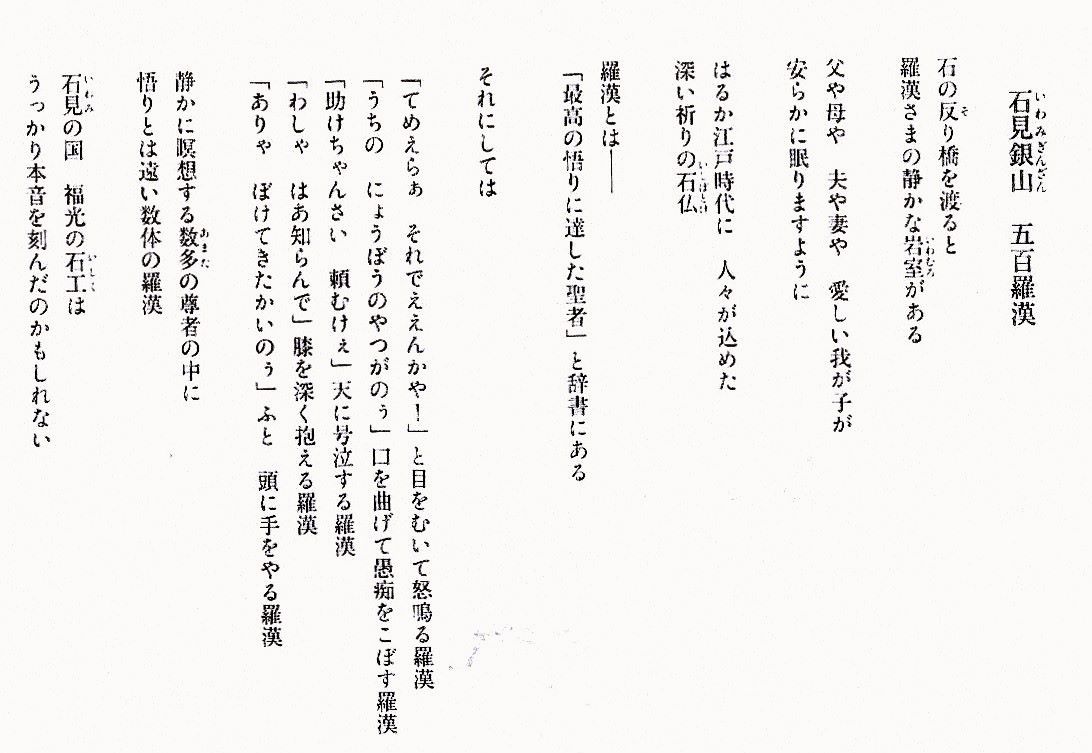 石見銀山　五百羅漢
石の反り橋を渡ると
羅漢さまの静かな岩室がある
父や母や　夫や妻や　愛しい我が子が
安らかに眠りますように
はるか江戸時代に　人々が込めた
深い祈りの石仏
羅漢とは――
「最高の悟りに達した聖者」と辞書にある
それにしては
「てめえらぁ　それでええんかや！」と目をむいて怒鳴る羅漢
「うちの　にょうぼうのやつがのぅ」口を曲げて愚痴をこぼす羅漢
「助けちゃんさい　頼むけぇ」天に号泣する羅漢
「わしゃ　はあ知らんで」膝を深く抱える羅漢
「ありゃ　ぼけてきたかいのぅ」ふと　頭に手をやる羅漢
静かに瞑想する数多の尊者の中に
悟りとは遠い数体の羅漢
石見の国　福光の石工は
うっかり本音を刻んだのかもしれない